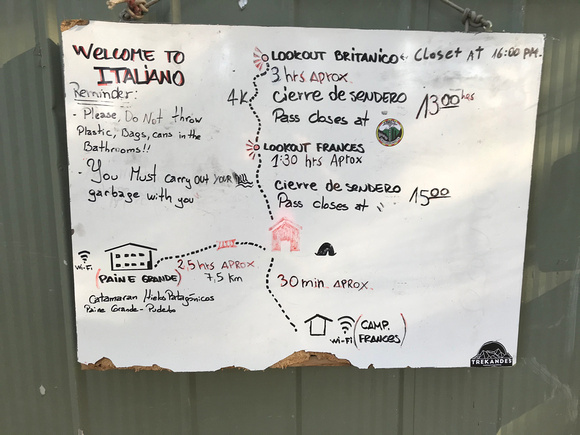 WELCOME TO
ITALIANO
Reminder:
- Please, Do Not throw
Plastic, Bags, cans in the
Bathrooms!!
- You Must carry out your
garbage with you
LOOKOUT BRITANICO ← Closet At 16:00 PM.
3 hrs Aprox
4K
Cierre de SENDERO
Pass closes at
13:00 hrs
LOOKOUT FRANCES
1:30 hrs Aprox
Cierre de SENDERO
Pass closes at "
15:00
Wi-Fi.
(PAINE GRANDE)
2,5 hrs APROX
7,5 km
Catamaran Hielos Patagónicos
Paine Grande - Pudeto
30 min APROX.
Wi-Fi
(CAMP. FRANCES)
TREKANDES